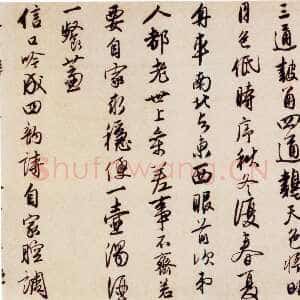 三通鼓角四通鷄天色將明
月色低時序秋冬復春夏
舟車南北与東西眼前次第
人都老世上參差事不齊若
要自家求穩便一壺濁酒
一餐虀
信口吟成四韵詩自家腔調
Shufawang.CN